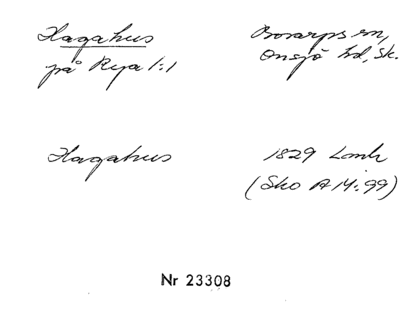 Hagahus
på Rya 1:1
Bosarps sn,
Onsjö hd, Sk.
Hagahus
1829 Lomh
(Sko A 14:99)
Nr 23308